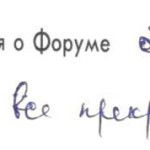 я о Форуме
все прекр